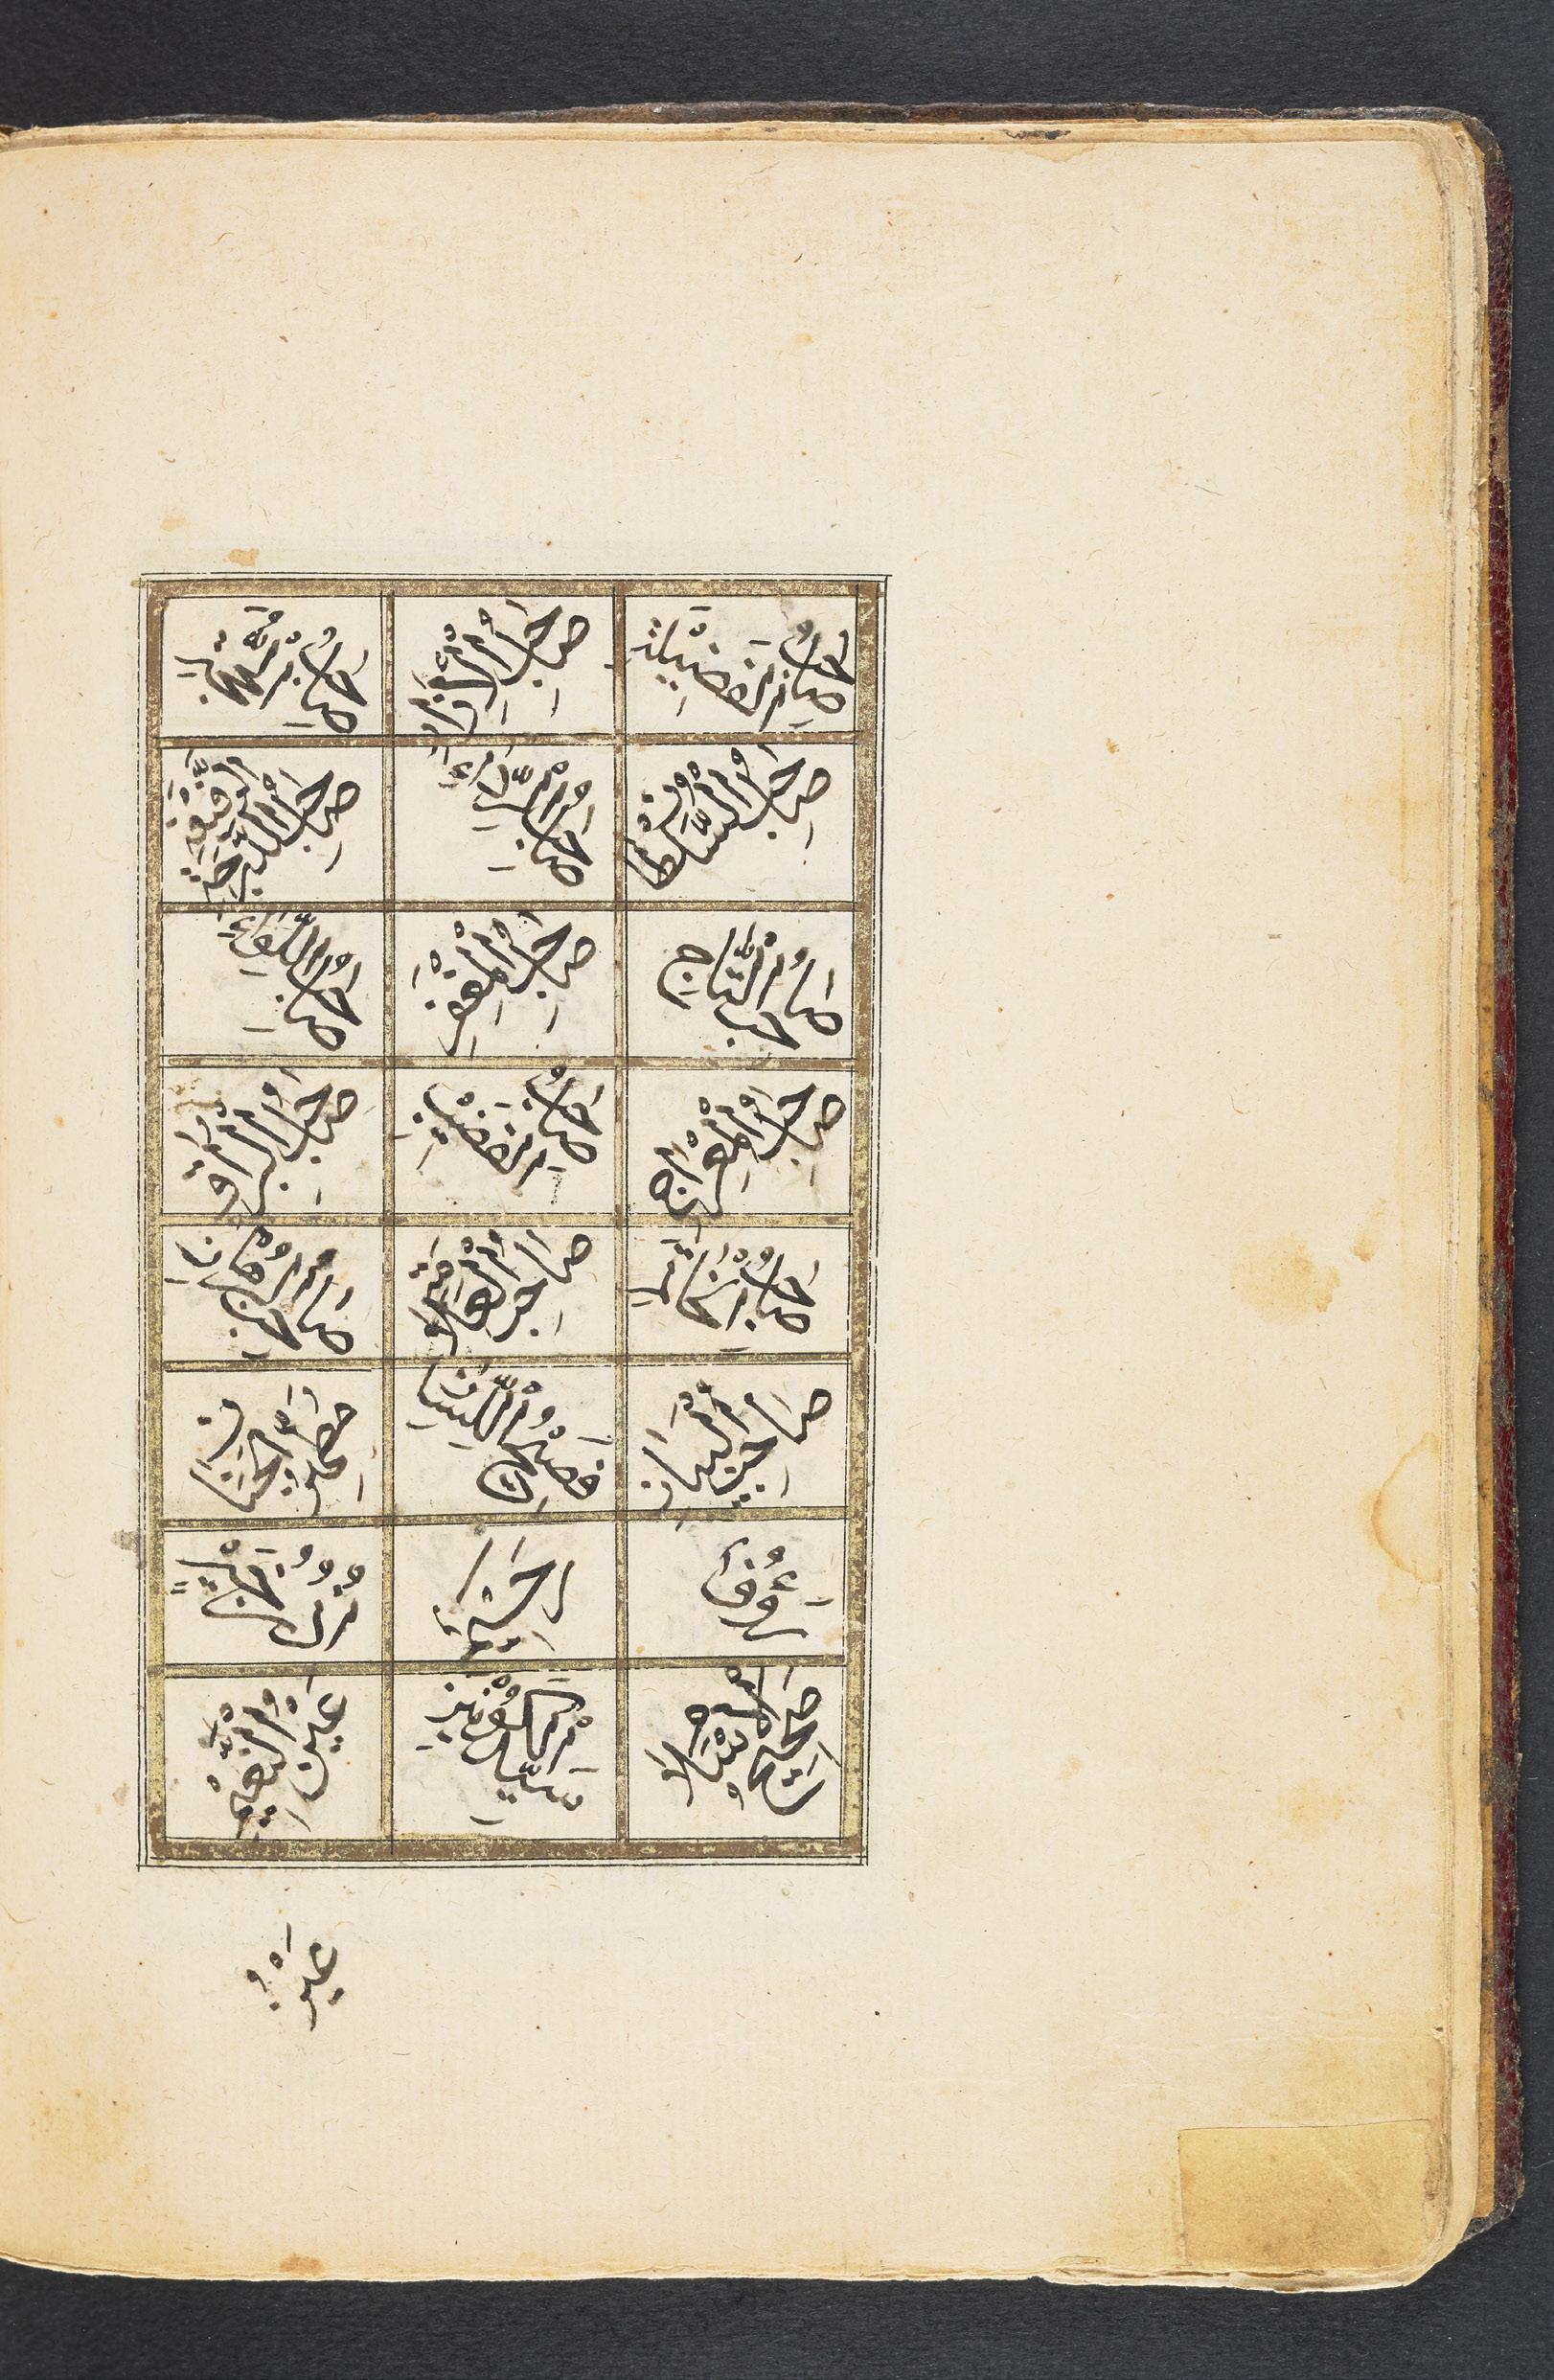 صاحب الفضيلة صاحب الازار صاحب الحجة
صاحب السلطان صاحب الرداء صاحب الدرجة الرفيعة
صاحب التاج صاحب المغفر صاحب اللواء
صاحب المعراج صاحب القضيب صاحب البراق
صاحب الخاتم صاحب العلامة صاحب البرهان
صاحب البيان فصيح اللسان مطهر الجنان
رؤف رحيم اذن خير
صحيح الاسلام سيد الكونين عين النعيم
عين